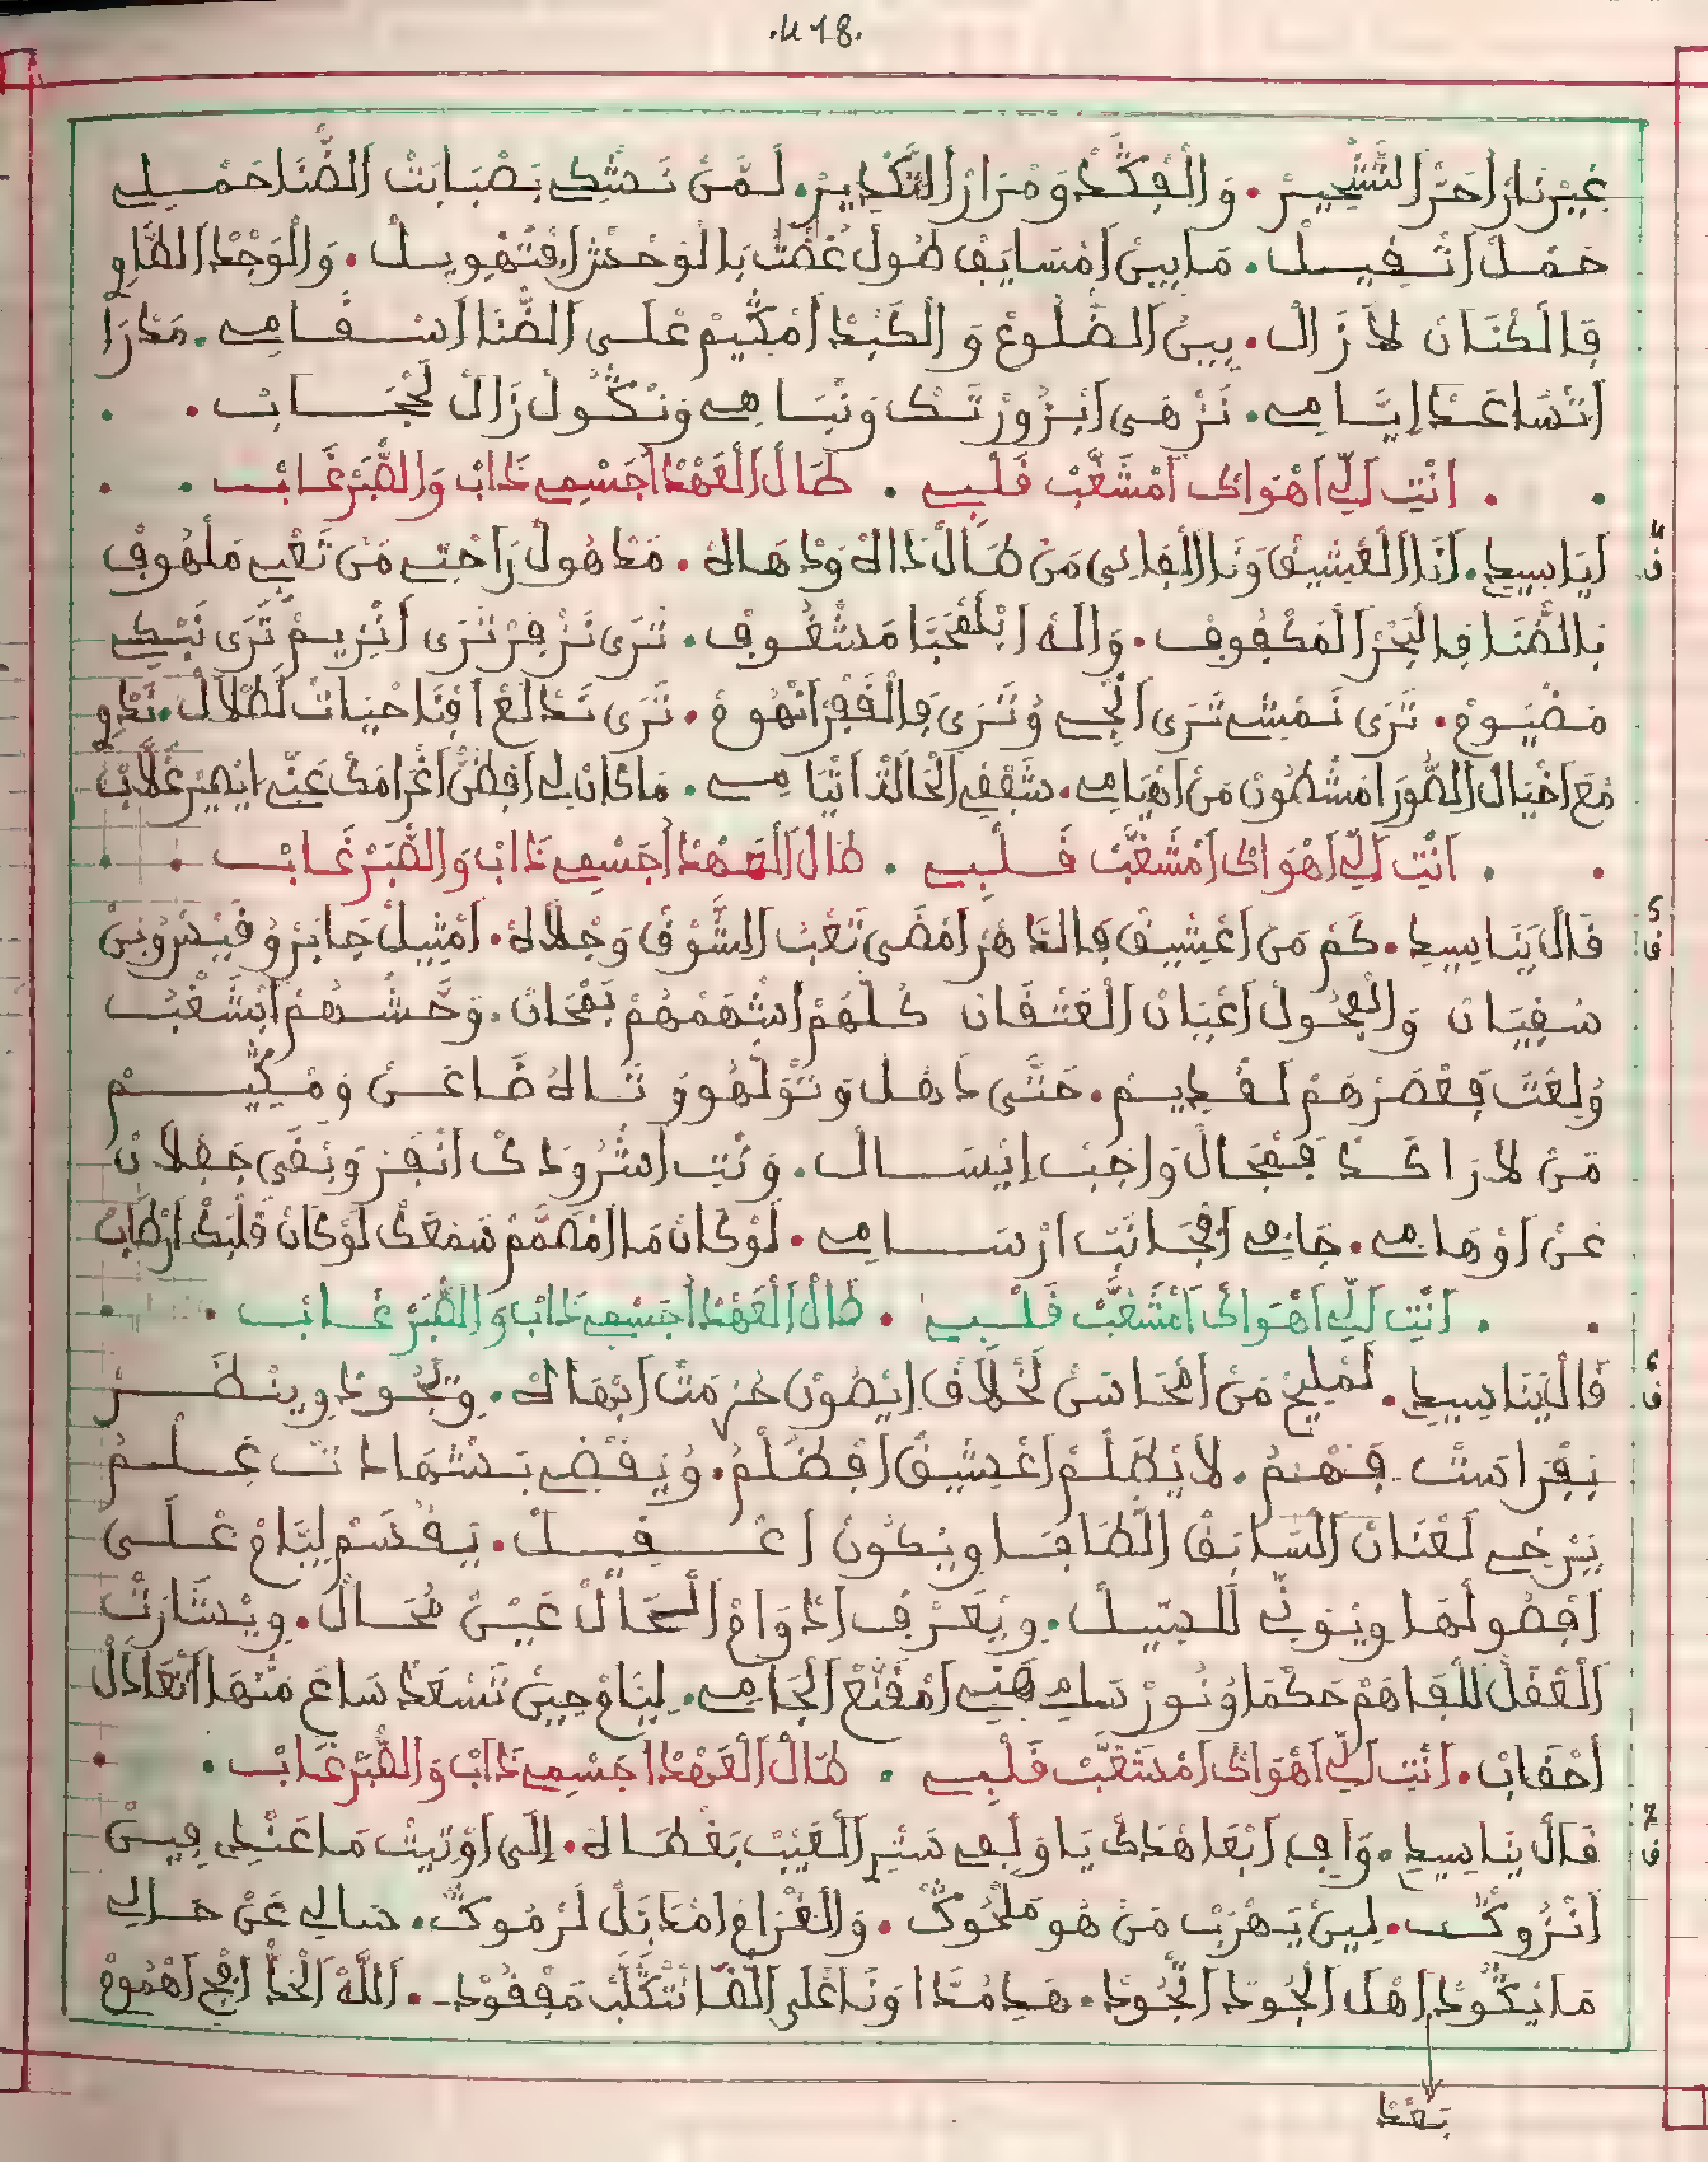 .418.
غِيرْ نَارْ اَحَرّْ التَّشْحِيرْ . وَالْفَكْدْ وَمْرَارْ التَّكْدِيرْ. لَمَّنْ نَشْكِي بَصْبَابَتْ الضّْنَا حَمْلِي
حَمْلْ اَثْقِيلْ . مَابِينْ اَمْسَايَفْ طُولْ غُضْتْ بَالْوَحْشْ اَفْتَهْوِيلْ . وَالْوَجْدْ الطَّاوِي
فَالْكْنَانْ لَازَالْ . بِينْ الضّْلُوعْ وَالْكَبْدْ اَمْكِيمْ عْلَى الضّْنَا اَسْقَامِي . مَدْرَا
اَتْسَاعَدْ اِيَّامِي . نَزْهَى اَبْزُورْتَكْ وَنْبَاهِي وَنْكُولْ زَالْ لَحْجَابْ .
. اَنْتِ اَلِّي اَهْوَاكْ اَمْشَغَّبْ قَلْبِي . طَالْ الْعَهْدْ اَجَسْمِي ذَابْ وَالصّْبَرْ غَابْ .
ڧ 4 اَيَا سِيدِي . اَنَا الْعْشِيقْ وَنَا الْفَانِي مَنْ طَالْ ذَاهْ وَدْهَاهْ . مَدْهُولْ رَاحْتِي مَنْ تَعْبِي مَلْهُوفْ
بَالضّْنَا فِالْبَحْرْ الْمَكْفُوفْ . وَالَهْ اَبْلَمْحَبَّا مَشْغُوفْ . تَرَى نَزْفِرْ تَرَى اَنْرِيمْ تَرَى نَبْكِي
مَضْيُومْ . تَرَى نَمْشِي تَرَى اَنْجِي وُتَرَى فِالْقْفَرْ اَنْهُومْ . تَرَى نَدْلَعْ اَفْنَاحْيَاتْ لَطْلَالْ . نَدْوِي
مْعَ اَخْيَالْ الصُّورَا مَشْطُونْ مَنْ اَهْيَامِي . شَقْفِي اَنْحَالْ لَذْ اَنْيَامِي . مَاكَانْ لِي اَفْظَنّْ اَغْرَامَكْ عَنِّي اِيْصِيرْ غَلَّابْ
. اَنْتِ اَلِّي اَهْوَاكْ اَمْشَغَّبْ قَلْبِي . طَالْ الْعَهْدْ اَجَسْمِي ذَابْ وَالصّْبَرْ غَابْ .
ڧ 5 قَالْ يَا سِيدِي . كَمْ مَنْ اَعْشِيقْ فَالدَّاهْرْ اَمْضَى تَعْبْ الشُّوقْ وَجْلَاهْ . اَمْثِيلْ جَابَرْ وُقَيْدْرُوبَنْ
سَفْيَانْ وَالْفْحُولْ اَعْيَانْ الْعَشْقَانْ كُلْهُمْ اَشْهَمْهُمْ بَمْحَانْ . وَحْشْهُمْ اَبْشَغْبْ
وُلِعْتْ فِعْصَرْهُمْ لَقْدِيمْ . حَتَّى دَهَلْ وَتْوَلْهُو وَ تَاهْ ضَاعَنْ وَمْكِيمْ
مَنْ لَا رَاكَدْ فَمْحَالْ وَاجَبْ اِيْسَالْ . وَنْتِ اَشْرُودَكْ اَنْفَرْ وَبْقَى جَفْلَانْ
عَنْ اَوْهَامِي . جَافِي اَفْجَانَبْ اَرْسَامِي . لَوْكَانْ مَا اَمْصَمَّمْ سَمْعَكْ لَوْكَانْ قَلْبَكْ اَرْطَابْ
. اَنْتِ اَلِّي اَهْوَاكْ اَمْشَغَّبْ قَلْبِي . طَالْ الْعَهْدْ اَجَسْمِي ذَابْ وَالصّْبَرْ غَابْ .
ڧ 6 قَالْ يَا سِيدِي . لَمْلِيحْ مَنْ اَمْحَاسَنْ لَخْلَاقْ اِيْصُونْ حُرْمَتْ اَبْهَاهْ . وِيْجُودْ وِينْظَرْ
بَفْرَاسْتْ فَهْمُ . لَا يَظْلَمْ اَعْشِيقْ اَفْظُلْمُ . وُيَقْضِي بَشْهَادَتْ عَلْمُ
يَرْخِي لَعْنَانْ السَّابَقْ الطَّافَا وِيْكُونْ اَعْقِيلْ . يَقْسَمْ لِيَّامْ عْلَى
اَفْصُولْهَا وِيْوَفِّي لَلسّْبِيلْ . وِيْعَرْفْ اَدْوَامْ الْحَالْ عَيْنْ مُحَالْ . وِيْشَارَتْ
الْعْقَلْ لَلْفَاهَمْ حَكْمَا وُنُورْ سَامِي هَنِي اَمْقَنَّعْ اَلْجَامِي . لِيَّامْ حِينْ تَسْعَدْ سَاعَ مَنْهَا اَتْعَادَلْ
اَحْقَابْ . اَنْتِ اَلِّي اَهْوَاكْ اَمْشَغَّبْ قَلْبِي . طَالْ الْعَهْدْ اَجَسْمِي ذَابْ وَالصّْبَرْ غَابْ .
ڧ 7 قَالْ يَا سِيدِي . وَافِي اَبْعَاهْدَكْ يَا وَلْفِي سَتْرْ الْعَيْبْ بَغْطَاهْ . اِلَى اَوْتِيتْ مَا عَنْدِي فِينْ
اَنْرُوكْ . لِينْ يَهْرَبْ مَنْ هُو مَلْحُوكْ . وَالْغْرَامْ اَمْقَابَلْ لَرْمُوكْ . سَالِي عَنْ حَالِي
مَا نْكُودْ اَهْلْ الْجُودْ اَتْجُودْ . هَدِ مُدَّا وَنَا عْلَى الصّْفَا نَتْكَلَّبْ مَفْقُودْ . اَللَّهْ الْخَدْ اَفْجِي اَهْمُومْ
بَعْدْ